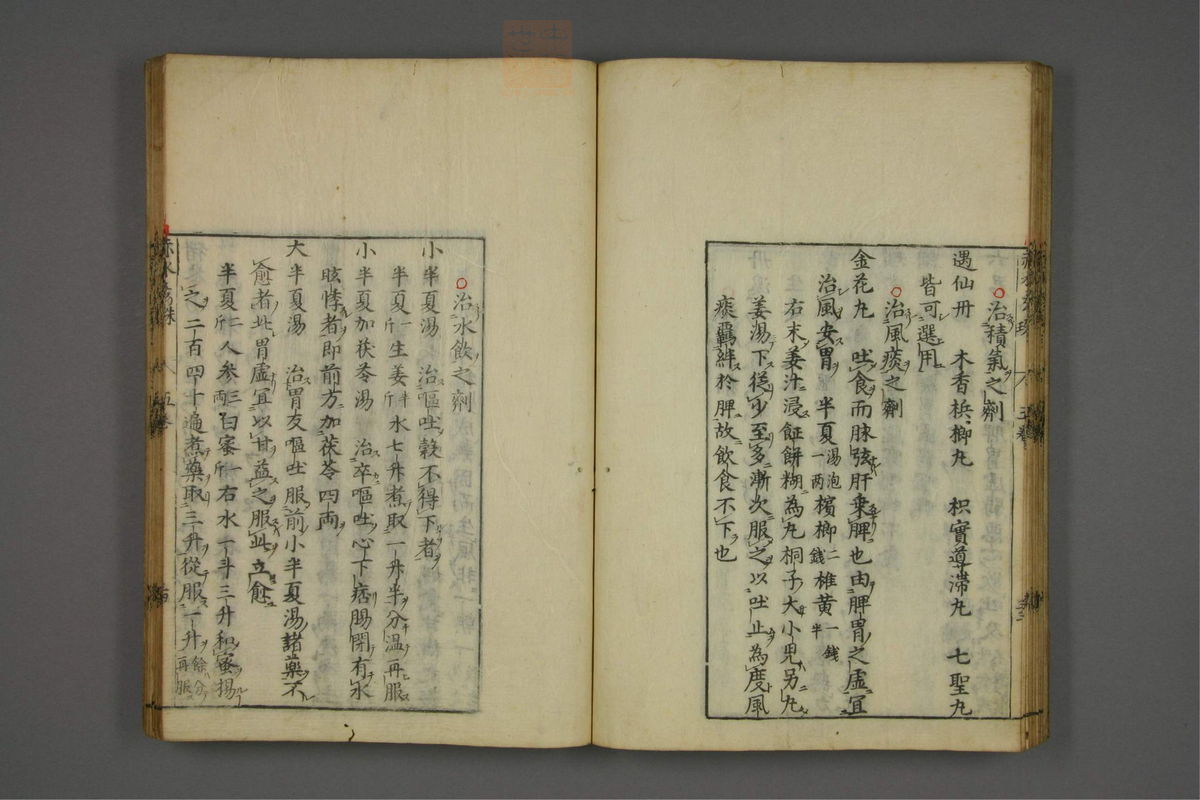 治積氣之劑
遇仙丹　木香梹榔丸　枳實導滯丸　七聖丸
皆可選用
治風痰之劑
金花丸　吐食而脉弦肝乗脾也由脾胃之虛宜
治風安胃　半夏一两湯泡檳榔二錢椎黄一錢半
右末姜汁浸䭀餅糊為丸桐子大小兒另丸
姜湯下從少至多漸次服之以吐止為度風
痰羈絆於脾故飲食不下也
治水飲之劑
小半夏湯　治嘔吐糓不得下者
半夏一斤生姜半斤水七升煮取一升半分温再服
小半夏加茯苓湯　治卒嘔吐心下痞膈閉有水
眩悸者即前方加茯苓四両
大半夏湯　治胃反嘔吐服前小半夏湯諸藥不
愈者此胃虛宜以甘益之服此立愈
半夏二斤人參三両白蜜一斤右水一斗三升和蜜揚
之二百四十遍煮藥取三升從服一升餘分再服